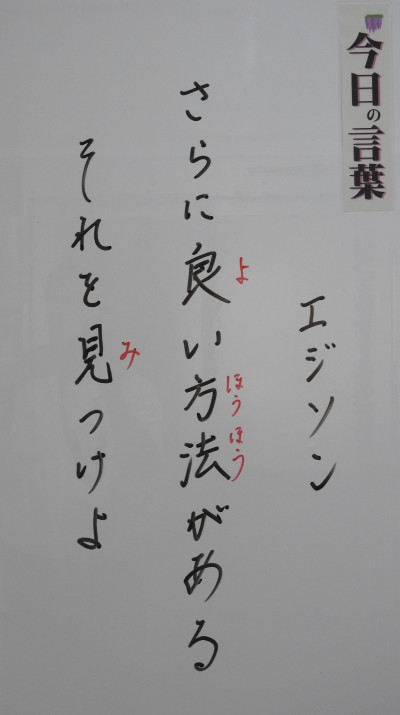 今日の言葉
エジソン
さらに良い方法がある
よ
ほうほう
それを見つけよ
み